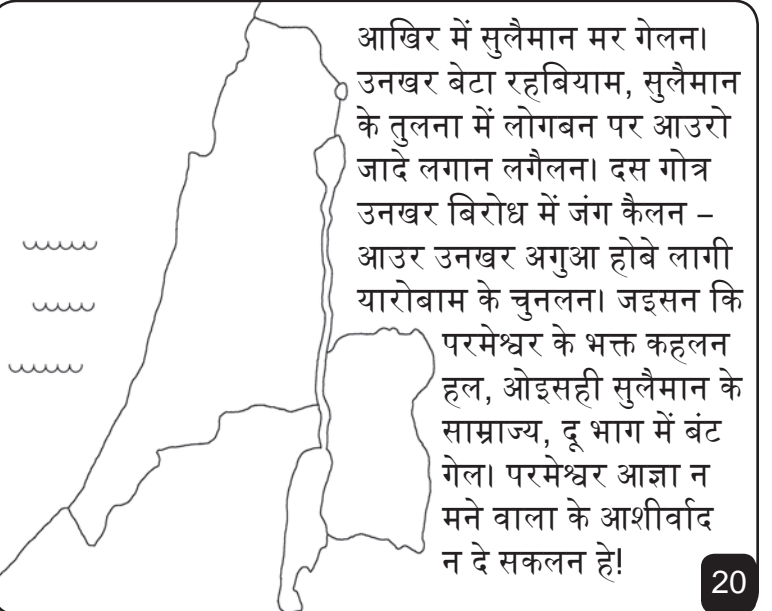 आखिर में सुलैमान मर गेलन।
उनखर बेटा रहबियाम, सुलैमान
के तुलना में लोगबन पर आउरो
जादे लगान लगैलन। दस गोत्र
उनखर बिरोध में जंग कैलन –
आउर उनखर अगुआ होबे लागी
यारोबाम के चुनलन। जइसन कि
परमेश्वर के भक्त कहलन
हल, ओइसही सुलैमान के
साम्राज्य, दू भाग में बंट
गेल। परमेश्वर आज्ञा न
मने वाला के आशीर्वाद
न दे सकलन हे!
20